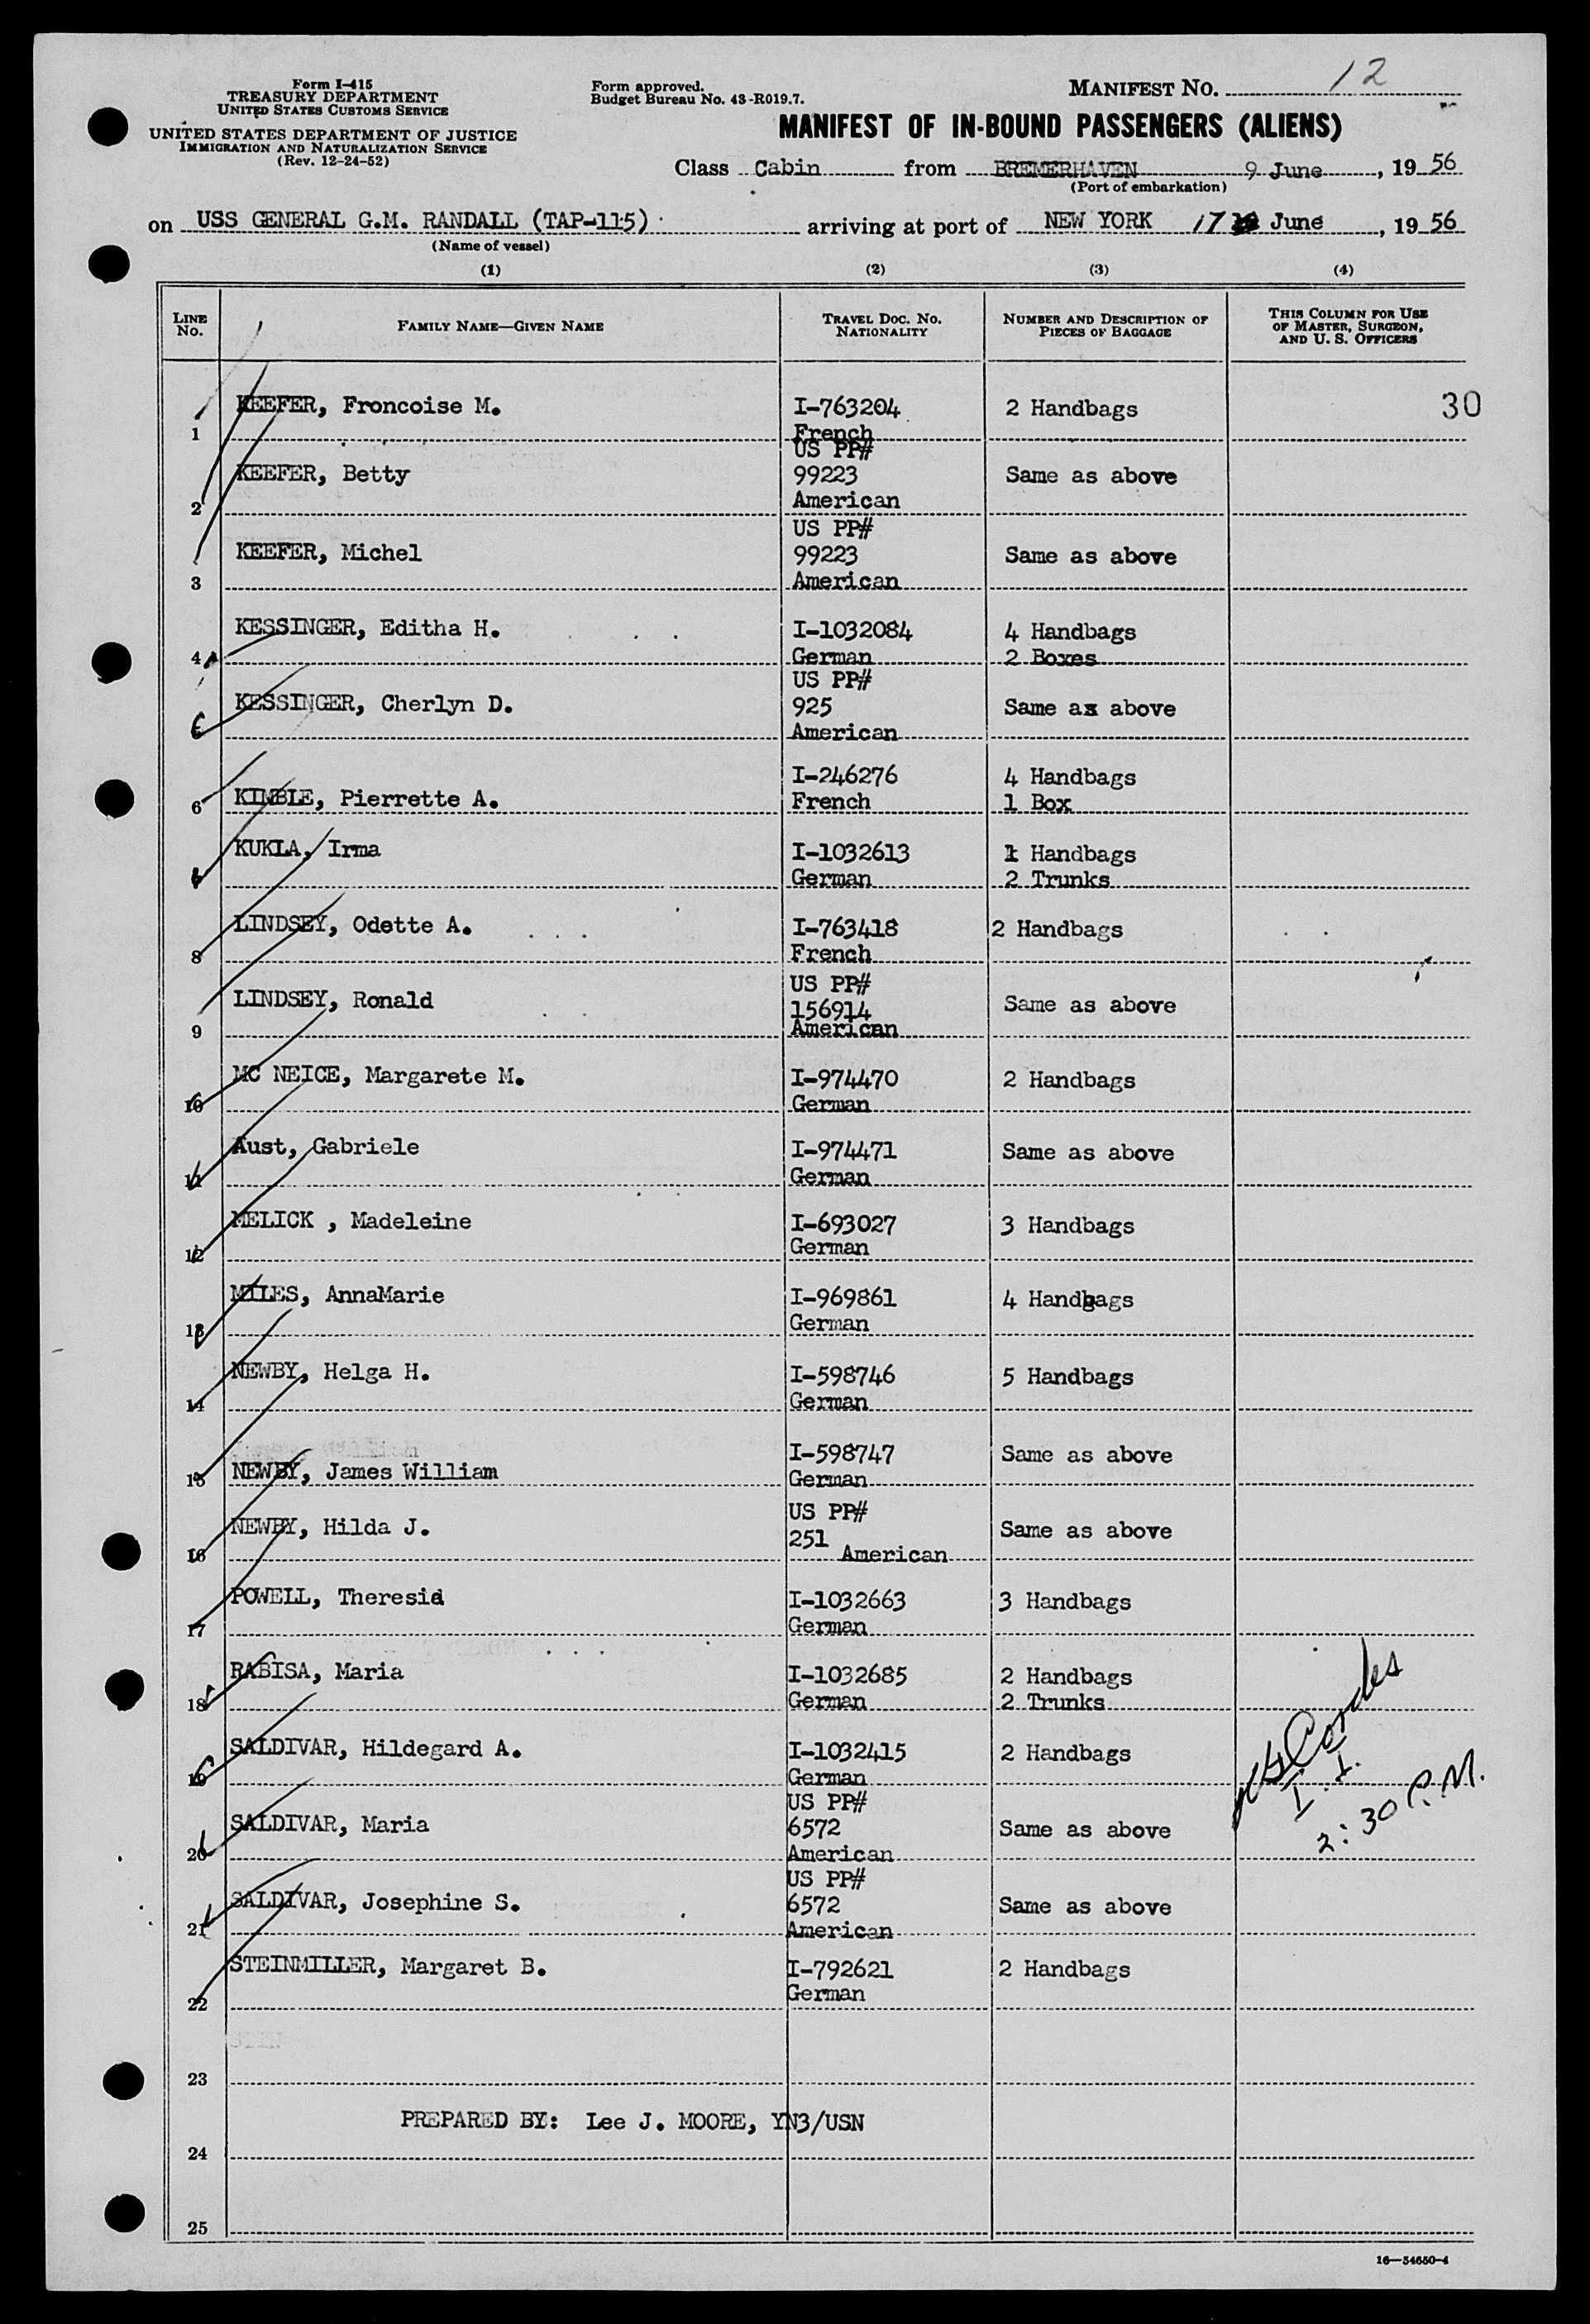 Form I-415
TREASURY DEPARTMENT
UNITED STATES CUSTOMS SERVICE
UNITED STATES DEPARTMENT OF JUSTICE
IMMIGRATION AND NATURALIZATION SERVICE
(Rev. 12-24-52)
Form approved.
Budget Bureau No. 43-R019.7.
MANIFEST NO. 12
MANIFEST OF IN-BOUND PASSENGERS (ALIENS)
Class Cabin from BREMERHAVEN 9 June, 19 56
(Port of embarkation)
on USS GENERAL G.M. RANDALL (TAP-115) arriving at port of NEW YORK 17 June, 19 56
(Name of vessel)
(1) (2) (3) (4)
LINE NO. FAMILY NAME—GIVEN NAME TRAVEL DOC. NO. NATIONALITY NUMBER AND DESCRIPTION OF PIECES OF BAGGAGE THIS COLUMN FOR USE OF MASTER, SURGEON, AND U. S. OFFICERS
1 KEEFER, Froncoise M. I-763204 French 2 Handbags 30
2 KEEFER, Betty US PP# 99223 American Same as above
3 KEEFER, Michel US PP# 99223 American Same as above
4 KESSINGER, Editha H. I-1032084 German 4 Handbags 2 Boxes
KESSINGER, Cherlyn D. US PP# 925 American Same as above
6 KIMBLE, Pierrette A. I-246276 French 4 Handbags 1 Box
KUKLA, Irma I-1032613 German 1 Handbags 2 Trunks
8 LINDSEY, Odette A. I-763418 French 2 Handbags
9 LINDSEY, Ronald US PP# 156914 American Same as above
10 MC NEICE, Margarete M. I-974470 German 2 Handbags
11 Aust, Gabriele I-974471 German Same as above
12 MELICK , Madeleine I-693027 German 3 Handbags
13 MILES, AnnaMarie I-969861 German 4 Handbags
14 NEWBY, Helga H. I-598746 German 5 Handbags
15 NEWBY, James William I-598747 German Same as above
16 NEWBY, Hilda J. US PP# 251 American Same as above
17 POWELL, Theresia I-1032663 German 3 Handbags
18 RABISA, Maria I-1032685 German 2 Handbags 2 Trunks
19 SALDIVAR, Hildegard A. I-1032415 German 2 Handbags
20 SALDIVAR, Maria US PP# 6572 American Same as above
21 SALDIVAR, Josephine S. US PP# 6572 American Same as above
22 STEINMILLER, Margaret B. I-792621 German 2 Handbags
Cordes
I. I.
2:30 P.M.
23
PREPARED BY: Lee J. MOORE, YN3/USN
24
25
16—54650-4